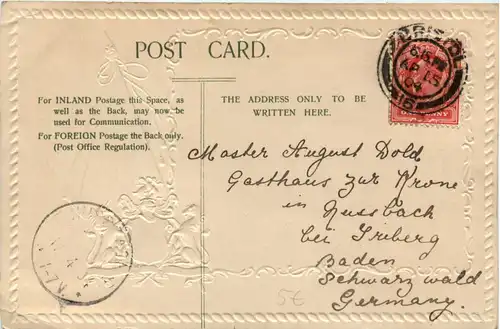 POST CARD.
For INLAND Postage this Space, as
well as the Back, may now be
used for Communication.
For FOREIGN Postage the Back only.
(Post Office Regulation).
THE ADDRESS ONLY TO BE
WRITTEN HERE.
BRISTOL
AP 15
04
ONE PENNY
Master August Dold
Gasthaus zur Krone
in Nussbach
bei Triberg
Baden
Schwarz wald
Germany.
5€